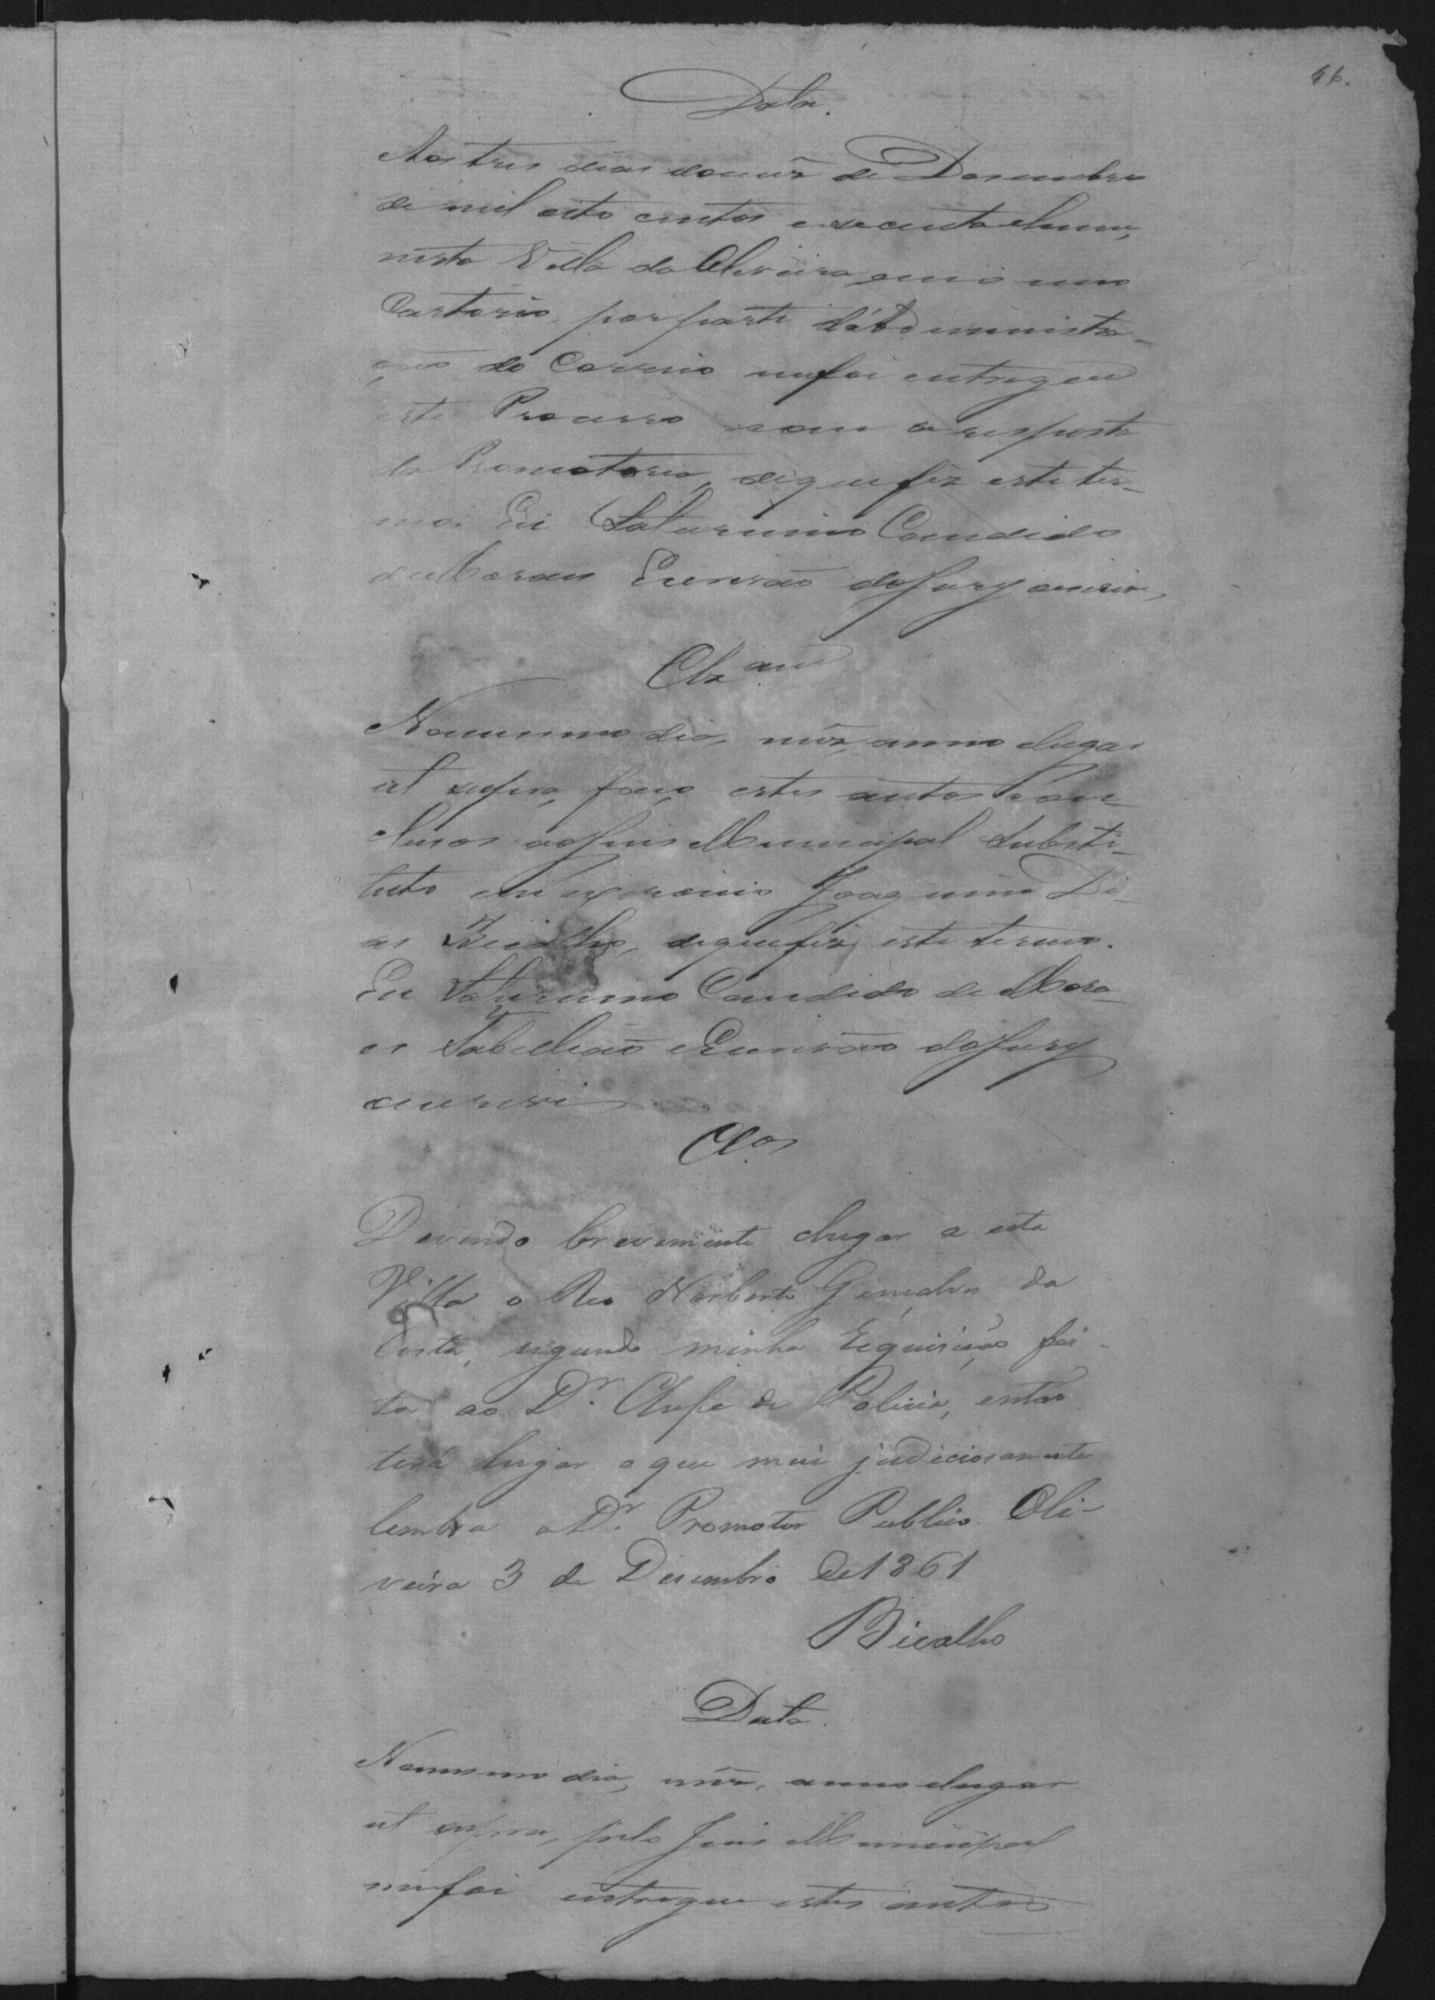 46.
Data.
Aos tres dias do mêz de Desembro
de mil oito centos e secenta e hum,
nesta Villa da Oliveira, em o meu
Cartorio, por parte d'Administra-
ção do Correio me foi entregue
este Processo com a resposta
da Promotoria, de que fiz este ter-
mo. Eu Saturnino Candido
de Moraes Escrivão do Jury escrivi,
Clzam
No mesmo dia, mêz, anno e lugar
ut supra, faço estes autos con-
clusos ao Juis Municipal Substi-
tuto em exercicio Joaquim Di-
as Bicalho, de que fiz este termo.
Eu Saturnino Candido de Mora-
es Tabellião e Escrivão do Jury
escrevi
Clos
Devendo brevemente chegar a esta
Villa o Reo Norberto Gonçalves da
Costa, segundo minha requisição fei-
ta ao Dr. Chefe de Policia, então
terá lugar o que mui judiciosamente
lembra o Dr. Promotor Publico. Oli-
veira 3 de Desembro de 1861
Bicalho
Data.
No mesmo dia, mêz, anno e lugar
ut supra, pelo Juis Municipal
me foi entregue estes autos